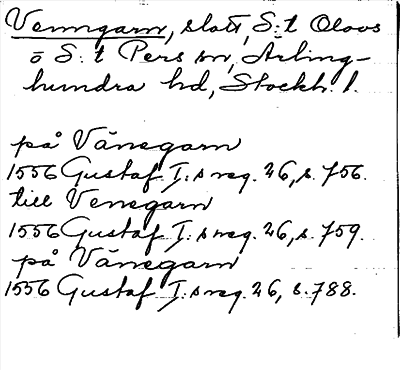 Venngarn, slott, S:t Olovs
o S:t Pers sn, Ärling-
hundra hd, Stockh. l.
på Vänegarn
1556 Gustaf I:s reg. 26, s. 756.
till Venegarn
1556 Gustaf I:s reg. 26, s. 759.
på Vänegarn
1556 Gustaf I:s reg. 26, s. 788.